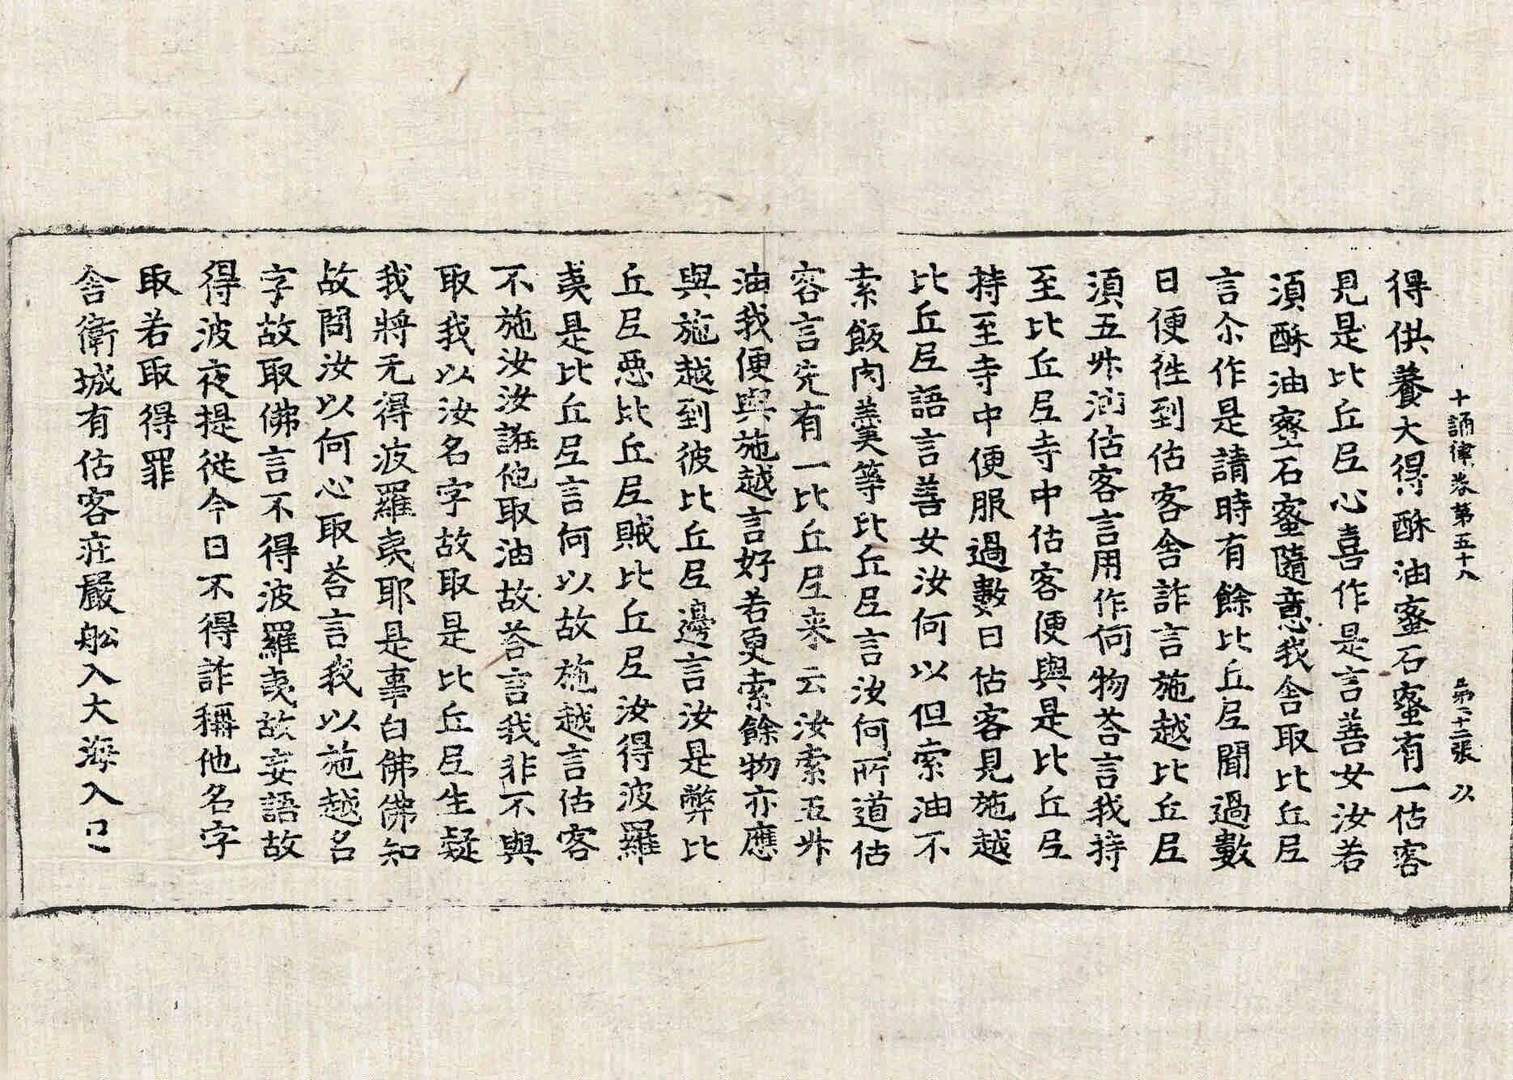 十誦律卷第五十八 第二十二張 以
得供養大得酥油蜜石蜜有一估客
見是比丘尼心喜作是言善女汝若
須酥油蜜石蜜隨意我舍取比丘尼
言尒作是請時有餘比丘尼聞過數
日便徃到估客舍詐言施越比丘尼
須五升油估客言用作何物荅言我持
至比丘尼寺中估客便與是比丘尼
持至寺中便服過數日估客見施越
比丘尼語言善女汝何以但索油不
索飯肉羹等比丘尼言汝何所道估
客言先有一比丘尼来云汝索五升
油我便與施越言好若更索餘物亦應
與施越到彼比丘尼邊言汝是弊比
丘尼惡比丘尼賊比丘尼汝得波羅
夷是比丘尼言何以故施越言估客
不施汝汝誑他取油故荅言我非不與
取我以汝名字故取是比丘尼生疑
我將无得波羅夷耶是事白佛佛知
故問汝以何心取荅言我以施越名
字故取佛言不得波羅夷故妄語故
得波夜提從今日不得詐稱他名字
取若取得罪
舍衛城有估客莊嚴舩入大海入口